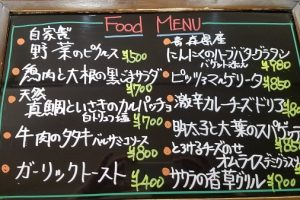 Food MENU
自家製
野菜のピクルス ¥500
鶏肉と大根の黒ごまサラダ
¥700
天然
真鯛といさきのカルパッチョ
白トリュフ塩 ¥1700
牛肉のタタキ バルサミコソース
¥800
ガーリックトースト
¥400
青森県産
にんにくのハーブバタグラタン
バゲット ¥980
ピッツァマルゲリータ
¥850
激辛カレーチーズドリア
明太子と大葉のスパゲッティ
¥850
とろけるチーズのせ
オムライス デミグラス
¥850
サザエの香草グリル ¥900